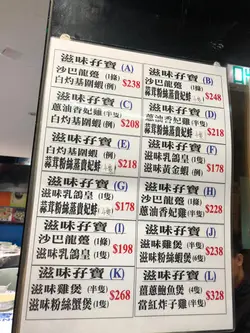 滋味孖寶 (A)
沙巴龍躉 (1條)
白灼基圍蝦 (例) $238
滋味孖寶 (B)
沙巴龍躉 (1條)
蒜茸粉絲蒸貴妃蚌 $248
滋味孖寶 (C)
蔥油香妃雞 (半隻)
白灼基圍蝦 (例) $208
滋味孖寶 (D)
蔥油香妃雞 (半隻)
蒜茸粉絲蒸貴妃蚌 $218
滋味孖寶 (E)
白灼基圍蝦 (例)
蒜茸粉絲蒸貴妃蚌 $218
滋味孖寶 (F)
滋味乳鴿皇 (1隻)
滋味黃金蝦 (例) $178
滋味孖寶 (G)
滋味乳鴿皇 (1隻)
蒜茸粉絲蒸貴妃蚌 $178
滋味孖寶 (H)
沙巴龍躉 (1條)
蔥油香妃雞 (半隻) $228
滋味孖寶 (I)
沙巴龍躉 (1條)
滋味乳鴿皇 (1隻) $198
滋味孖寶 (J)
滋味雞煲 (半隻)
沙巴龍躉 (1條) $238
滋味孖寶 (K)
滋味雞煲 (半隻)
滋味粉絲蟹煲 (1隻) $268
滋味孖寶 (L)
薑蔥鮑魚煲 (8隻)
當紅炸子雞 (半隻) $328